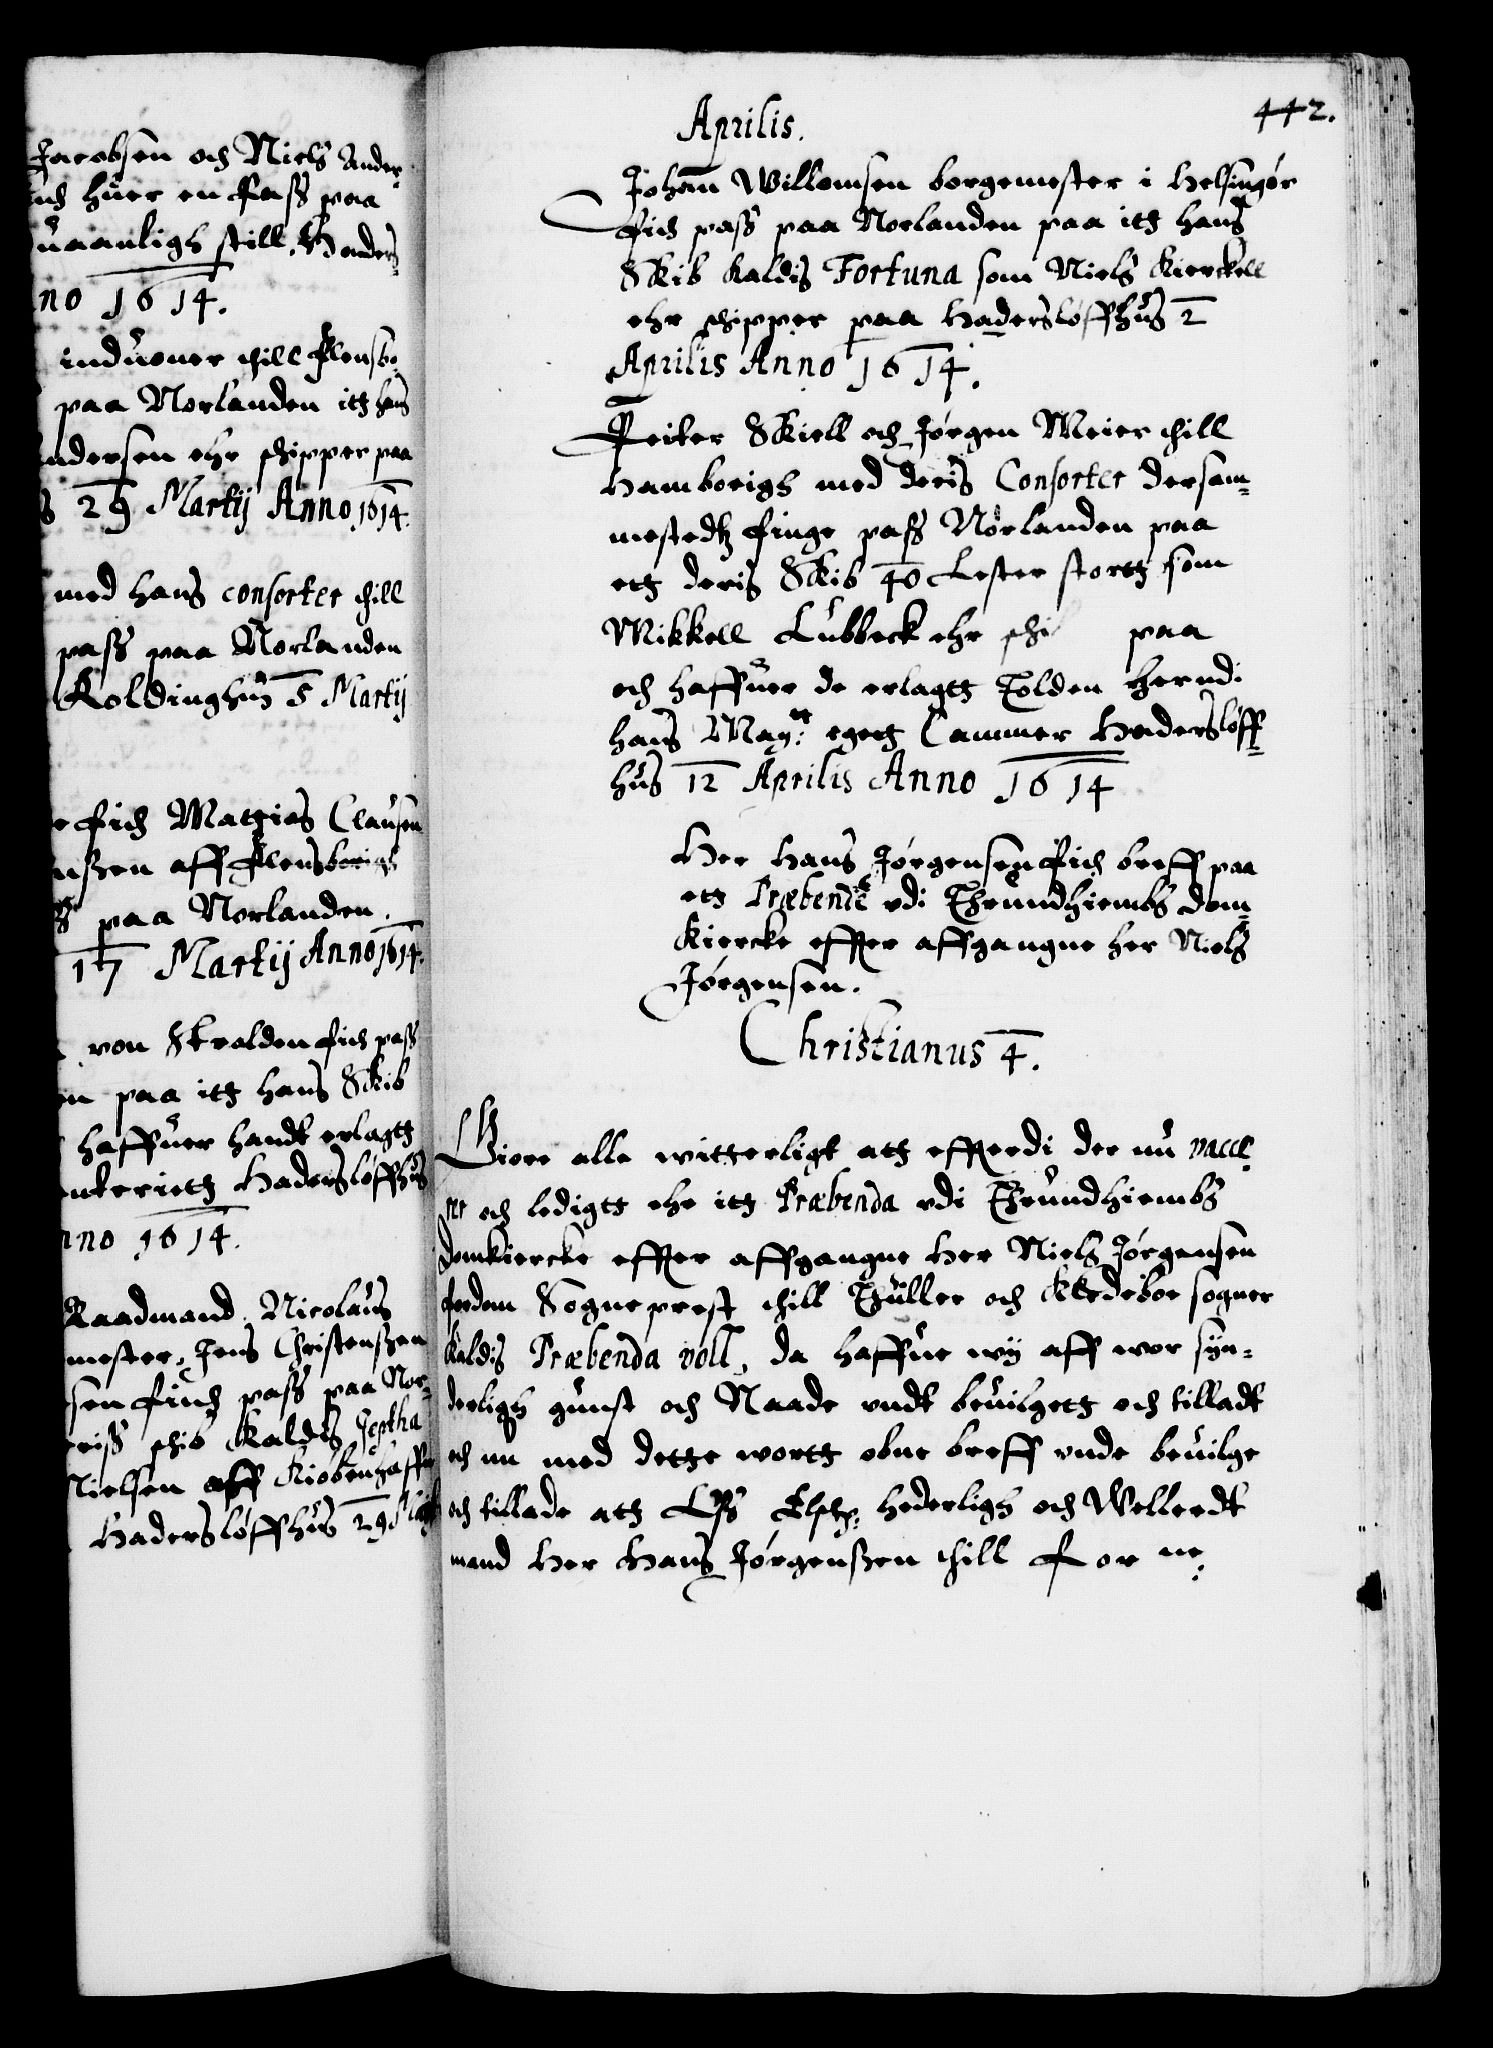 Jacobsen och Niels Ander-
huer en Pass paa
uaanligh still. Haders-
no 1614.
induoner thill Flensbo
paa Norlanden itt hans
ndersen ehr skipper paa
s 29 Martij Anno 1614.
med hans consorter thill
pass paa Norlanden
Koldinghus 5 Martij
fich Matthias Clausen
nssen aff Flensborigh
paa Norlanden.
17 Martij Anno 1614.
von Stralden fich pass
paa itt hans Skib
haffuer handt erlagtt
Hadersløffhus
nno 1614.
Raadmand. Nicolaus
mester, Jens Christenssen
sen finch pass paa Nor-
riss skib Kaldis Jeptha
Nielsen aff Kiøbenhaffn
Hadersløffhus 29 Martij
442.
Aprilis.
Johan Willomsen borgemester i Helsingør
fich pass paa Norlanden paa itt hans
Skib kaldis Fortuna som Niels Kierckell
ehr skipper paa Hadersløffhus 2
Aprilis Anno 1614.
Peiter Skiell och Jørgen Meier thill
Hamborigh med deris Consorter dersam-
mestedtz finge pass Norlanden paa
ett deris Skib 40 Lester stortt som
Mikkell Lubbeck ehr ski paa
och haffuer de erlagtt Tolden herudi
hans May:tt egett Cammer Hadersløff-
hus 12 Aprilis Anno 1614
Her Hans Jørgensen fich breff paa
ett Præbende vdi Thrundhiembs dom-
Kiercke effter affgangne her Niels
Jørgensen.
Christianus 4.
Giøre alle witterligt att effterdi der nu vacce-
rer och ledigtt ehr itt Præbenda vdi Thrundhiembs
domkiercke effter affgangne Her Niels Jørgensen
fordom Sogneprest thill Thüller och sogner
kaldis Præbenda voll, da haffue wij aff wor syn-
derligh gunst och Naade vndt beuilgett och tilladt
och nu med dette wortt obne breff vnde beuilge
och tillade att Oss Elsch: hederligh och Wellerdt
mand Her Hans Jørgenssen thill for ne: